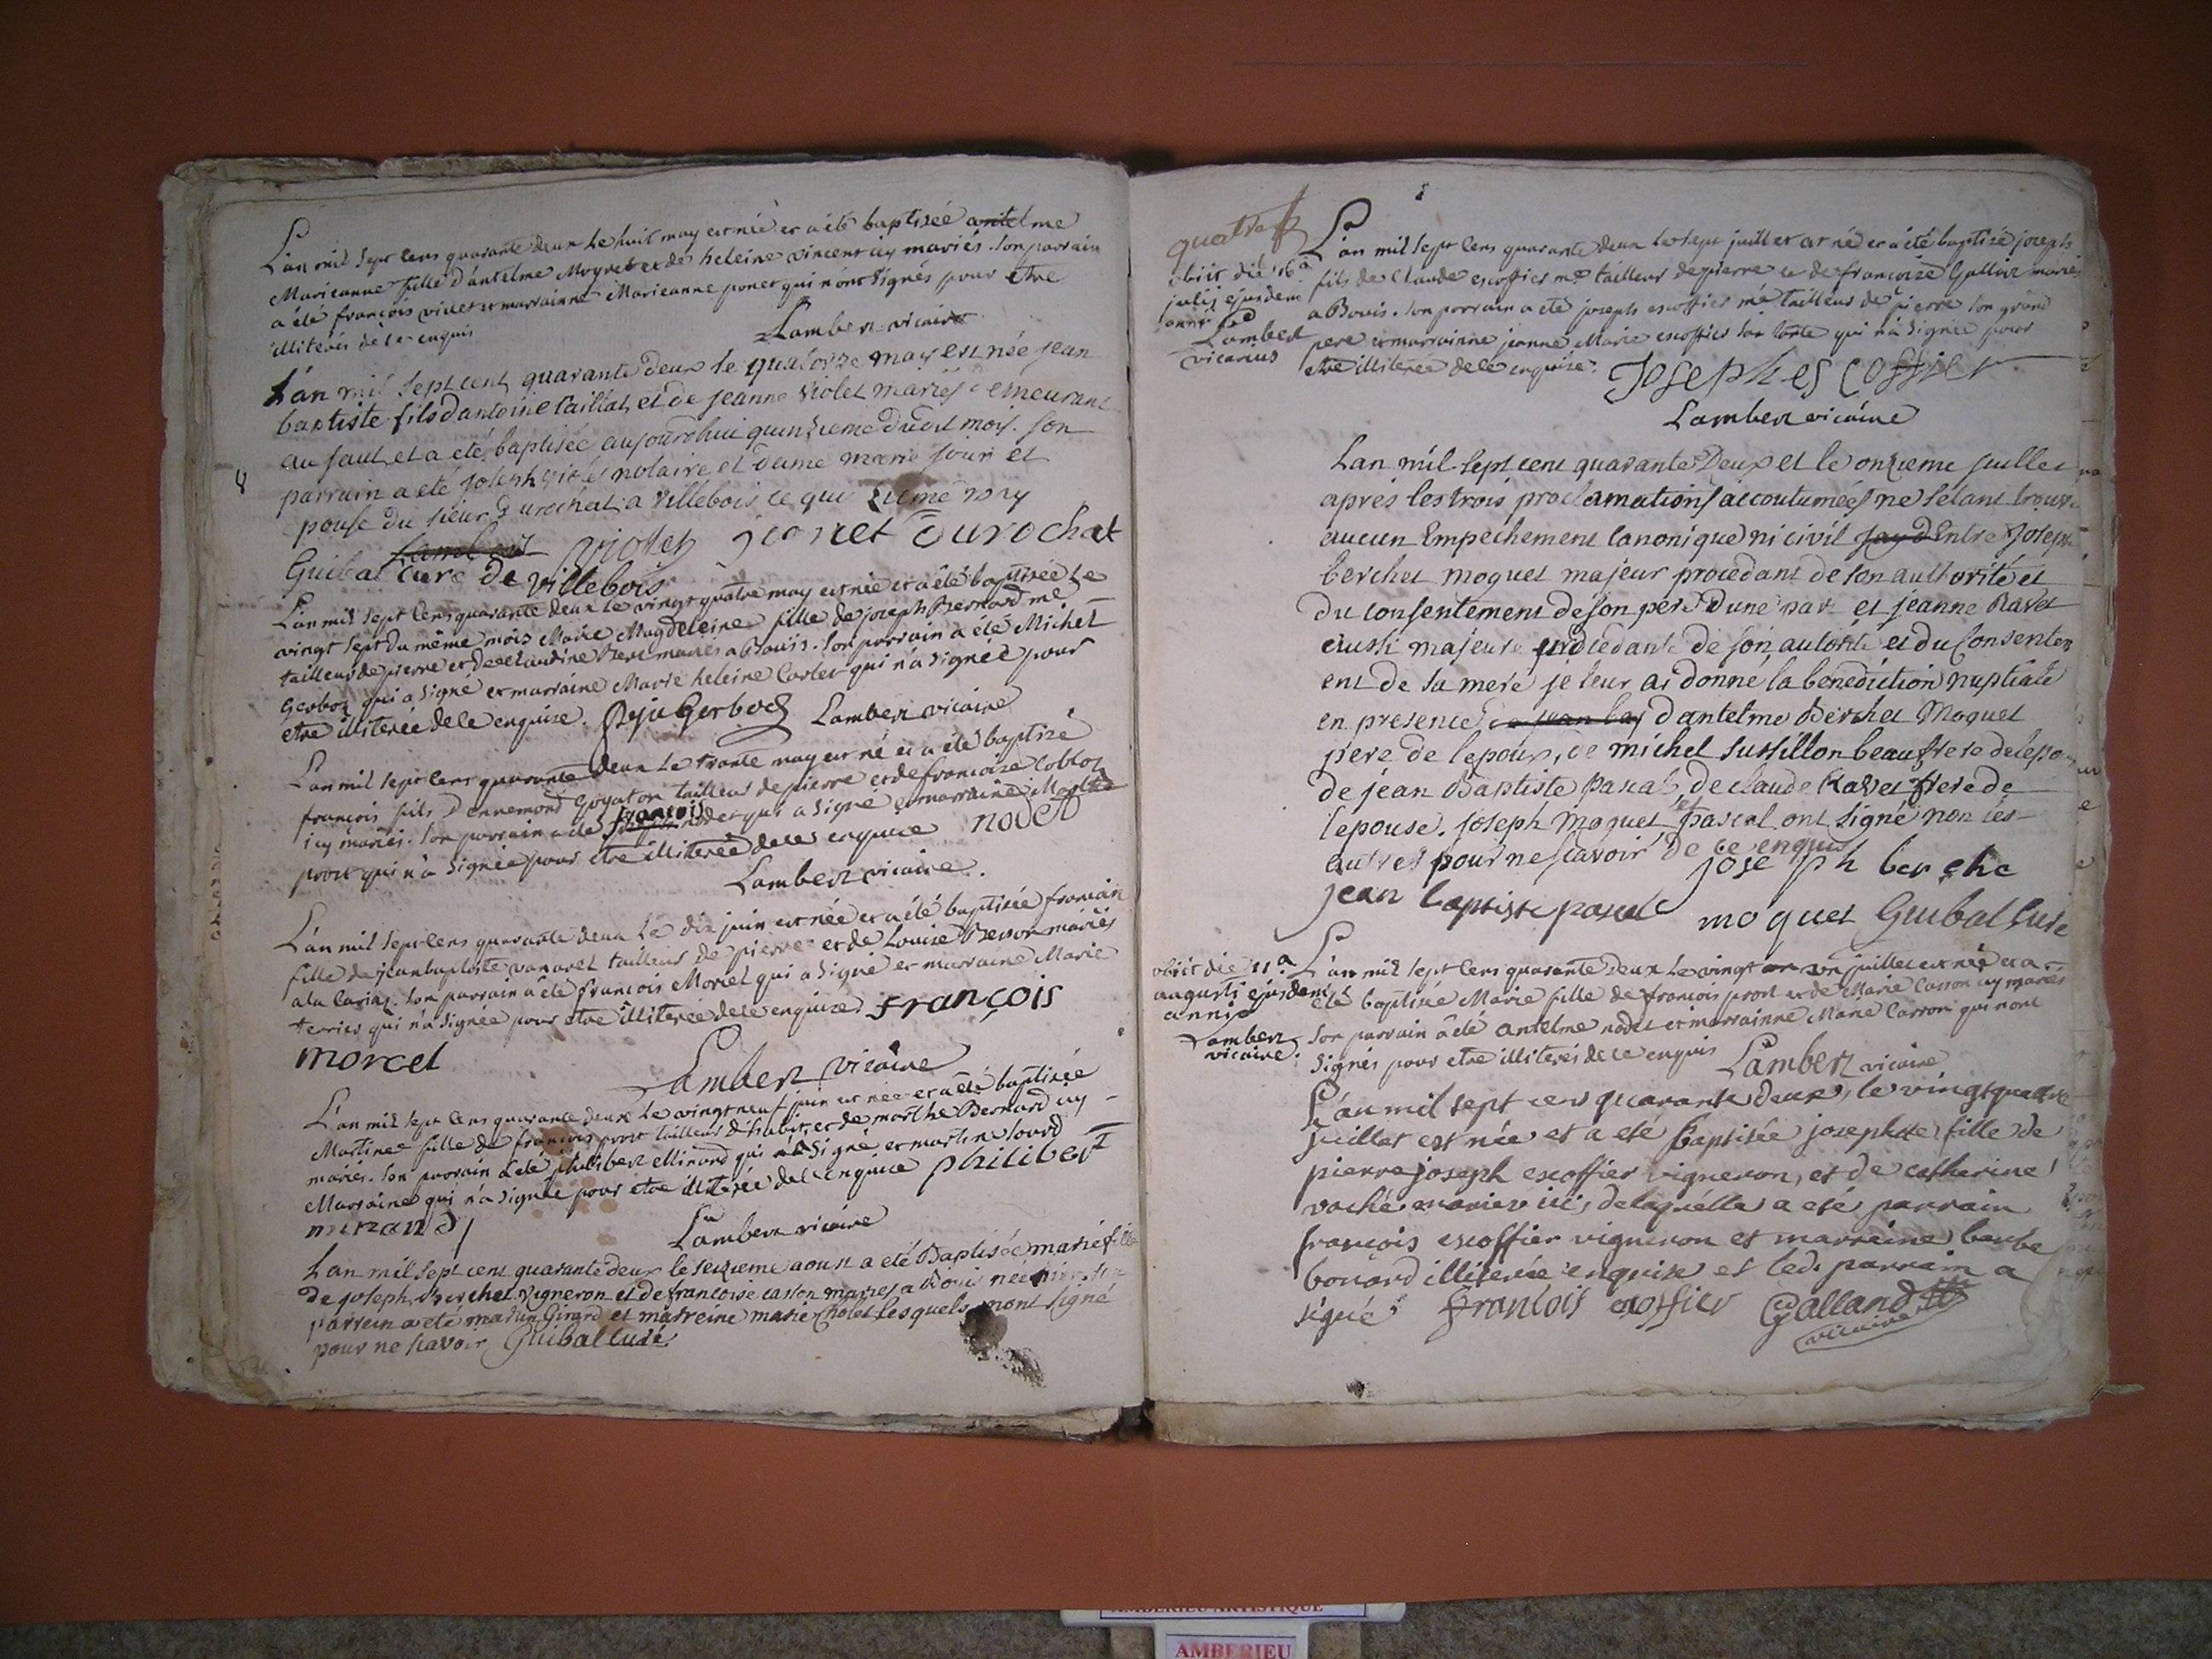 L'an mil sept cens quarante deux le huit may est née et a été baptisée antelme
Marieanne fille d'antelme Moguet et de heleine vincent icy mariés. son parrain
a été françois violet et marrainne Marieanne ponet qui n'ont signés pour etre
illiterés de ce enquis
Lamberz vicaire
L'an mil sept cent quarante deux le quatorze may est née jean
baptiste fils dantoine taillat et de jeanne violet mariés demeurant
au saut, et a eté baptisée aujourdhui quinzieme dudit mois. son
parrain a eté joseph violet notaire et dame marie
pouse du sieur Durochat a villebois ce que
8
violet Durochat
Guibal curé de villebois
L'an mil sept cens quarante deux le vingt quatre may est née et a été baptisée le
vingt sept du même mois Marie Magdeleine fille de joseph Bernard me
tailleur de pierre et de claudine mariés a Bouis. son parrain a été Michel
Gerboz qui a signé et marraine Marie heleine Carlet qui n'a signée pour
etre illiterée de ce enquise. Gerboz Lamberz vicaire
L'an mil sept cens quarante deux le trante may est né et a été baptizé
françois fils D'ennemond Goyaton tailleur de pierre et de francoise Cobloz
icy mariés. son parrain a été françois nodet qui a signé et marraine
prost qui n'a signée pour etre illiterée de ce enquise nodet
Lamberz vicaire.
L'an mil sept cens quarante deux le dix juin est née et a été baptisée
fille de jean baptiste vanarel tailleur de pierre et de Louise Besson mariés
a la Cariaz. son parrain a été françois Morcel qui a signé et marraine Marie
terrier qui n'a signée pour etre illiterée de ce enquize françois
morcel
Lamberz vicaire
L'an mil sept cens quarante deux le vingt neuf juin est née et a été baptisée
Martine fille de françois prost tailleur d'habit, et de marthe Bernard icy
mariés. son parrain a été philibert Minand qui a signé et martine
Marraine qui n'a signée pour etre illiterée de ce enquise philibert
minand
Lamberz vicaire
Lan mil sept cent quarante deux le seizieme aoust a eté Baptisée marie fille
de joseph Berchet vigneron et de francoise caston mariés a Bouis née hier. son
parrein a eté martin Girard et marreine marie Cholet lesquels n'ont signé
pour ne scavoir Guibal curé
quatre
obiit die 16a
julij ejusdem
anni
Lambert
vicarius
L'an mil sept cens quarante deux le sept juillet est né et a été baptisé joseph
fils de Claude escoffier me tailleur de pierre et de francoise Gallin mariés
a Bouis. son parrain a eté joseph escoffier me tailleur de pierre son grand
pere et marrainne jeanne Marie escoffier sa tante qui n'a signée pour
etre illiterée de ce enquise. Joseph escoffier
Lamberz vicaire
Lan mil sept cent quarante Deux et le onzieme juillet
aprés les trois proclamations accoutumées ne sétant trouvé
aucun Empechement canonique ni civil Entre Joseph
berchet moquet majeur procedant de son authorité et
du consentement de son pére d'une part et jeanne Ravet
aussi majeure procedante de son autorité et du consentem
ent de sa mere je leur ai donné la benediction nuptiale
en presence d'antelme Berchet Moquet
pere de lepoux, de michel sussillon beaufrere de lepoux
de jean Baptiste Pascal, de claude Ravet frere de
lepouse. joseph moquet et pascal ont signé non les
autres pour ne scavoir de ce enquis
joseph berche
jean baptiste pascal moquet Guibal curé
obiit die 11a
augusti ejusdem
anni
Lamberz
vicaire.
L'an mil sept cens quarante deux le vingt un juillet est née et a
été baptisée Marie fille de françois prost et de Marie Carron icy mariés
son parrain a été antelme nodet et marrainne Marie Carron qui n'ont
signés pour etre illiterés de ce enquis Lamberz vicaire
L'an mil sept cens quarante deux, le vingtquatre
juillet est née et a eté baptisée josephte fille de
pierre joseph escoffier vigneron, et de catherine
vaché mariez ici, delaquelle a eté parrain
françois escoffier vigneron et marreine barbe
bouard illiterée enquise et led. parrain a
signé. françois escoffier Galland
vicaire
AMBERIEU ARTISTIQUE
AMBERIEU